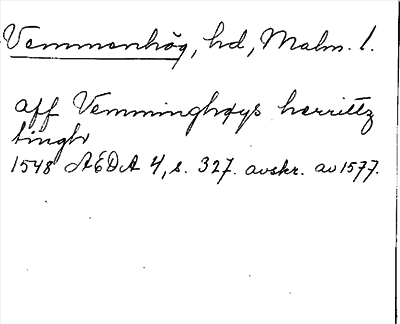 Vemmenhög, hd, Malm. l.
aff Vemminghøys herritz
tingh
1548 AEDA 4, s. 327. avskr. av 1577.